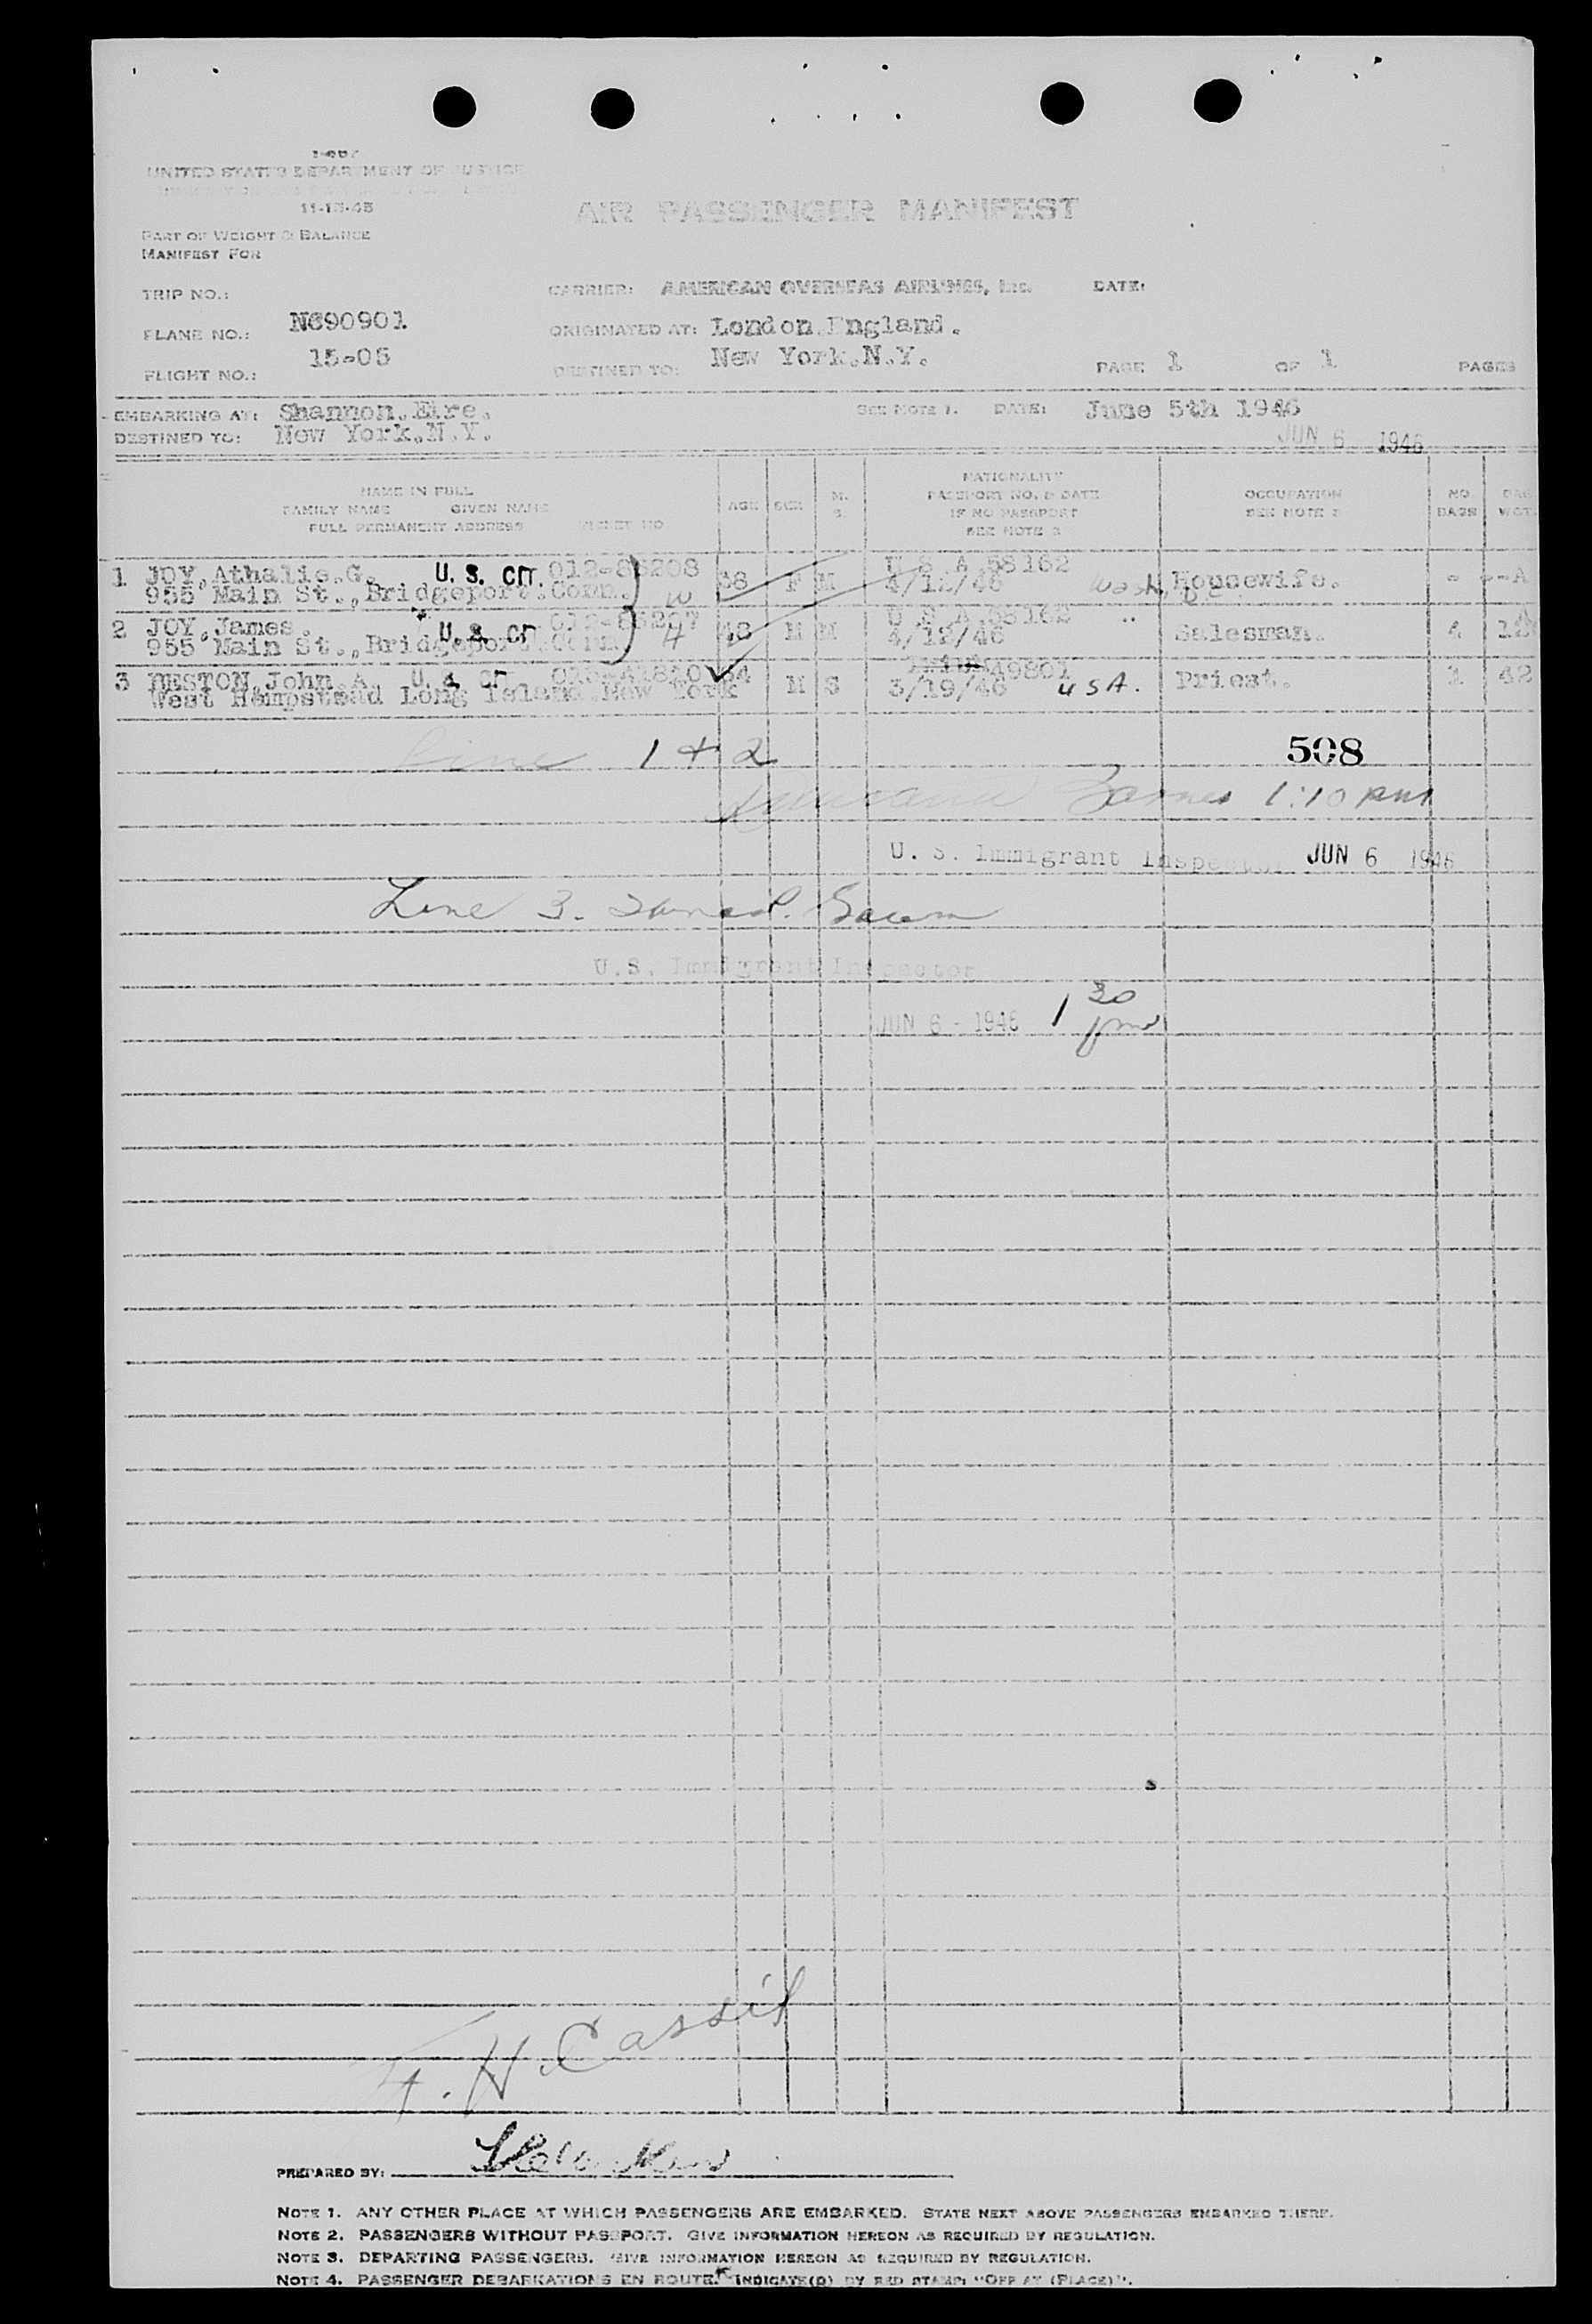 I-
UNITED STATES DEPARTMENT OF JUSTICE
11-13-45
AIR PASSENGER MANIFEST
PART OF WEIGHT & BALANCE
MANIFEST FOR
TRIP NO.: CARRIER: AMERICAN OVERSEAS AIRLINES, Inc. DATE:
PLANE NO.: N690901 ORIGINATED AT: London.England.
FLIGHT NO.: 15-05 DESTINED TO: New York.N.Y. PAGE 1 OF 1 PAGES
EMBARKING AT: Shannon.Eire. SEE NOTE 1. DATE: June 5th 1946
DESTINED TO: New York.N.Y. JUN 6 1946
NAME IN FULL
FAMILY NAME GIVEN NAME
FULL PERMANENT ADDRESS TICKET NO
AGE SEX M. S.
NATIONALITY
PASSPORT NO. & DATE
IF NO PASSPORT
SEE NOTE 2
OCCUPATION
SEE NOTE 3
NO. BAGS
BAG WGT.
1 JOY.Athalie.G. U. S. CIT. 012-86208 38 F M U S A 58162 Housewife. - --A
955 Main St.,Bridgeport.Conn. W 4/12/46 Wash, D.C.
2 JOY.James. U. S. CIT 012-86207 48 M M U S A 58162 " Salesman. 4
955 Main St.,Bridgeport.Conn H 4/12/46
3 John.A. U. S. CIT 34 M S 49801 Priest. 1 42
West Hempstead Long Island.New York 3/19/46 USA.
Line 1 + 2 508
Barnes 1:10 PM
U. S. Immigrant Inspector JUN 6 1946
Line 3.
U.S. Immigrant Inspector
JUN 6 - 1946 1 30 pm
H. Cassil
PREPARED BY:
NOTE 1. ANY OTHER PLACE AT WHICH PASSENGERS ARE EMBARKED. STATE NEXT ABOVE PASSENGERS EMBARKED THERE.
NOTE 2. PASSENGERS WITHOUT PASSPORT. GIVE INFORMATION HEREON AS REQUIRED BY REGULATION.
NOTE 3. DEPARTING PASSENGERS. GIVE INFORMATION HEREON AS REQUIRED BY REGULATION.
NOTE 4. PASSENGER DEBARKATIONS EN ROUTE. INDICATE(D) BY RED STAMP: "OFF AT (PLACE)".